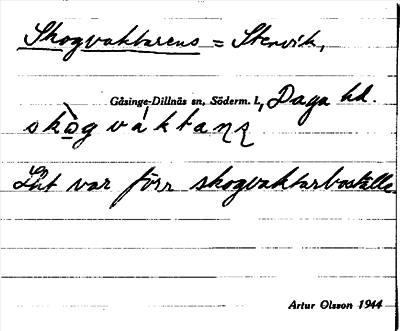 Skogvaktarens = Stenvik,
Gåsinge-Dillnäs sn, Söderm. l., Daga hd.
skò̱g váktaɳʂ
Lht var förr skogvaktarboställe
Artur Olsson 1944